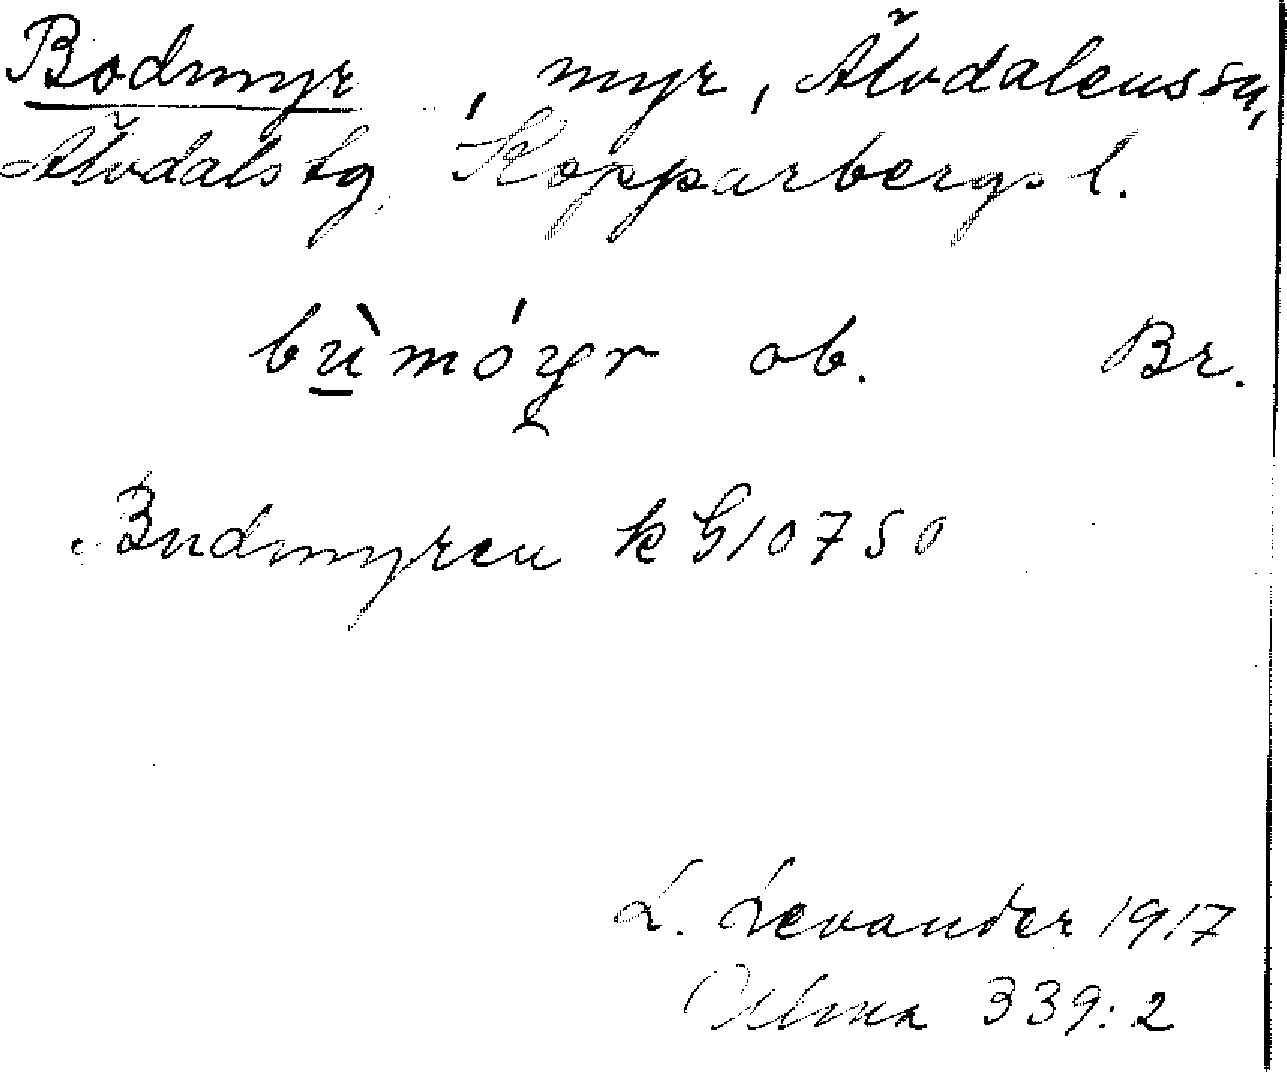 Bodmyr, myr, Älvdalens sn,
Älvdals tg, Kopparbergs l.
bù̲móyr ob. Br.
Budmyren k G10750
L. Levander 1917
Ulma 339:2